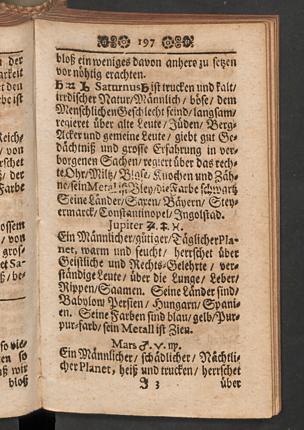 197
bloß ein weniges davon anhero zu setzen
vor nöhtig erachten.
♄ Saturnus ♄ ist trucken und kalt/
irrdischer Natur/Männlich/ böse/ dem
Menschlichen Geschlecht feind/ langsam/
regieret über alte Leute/ Jüden/ Berg-
Acker und gemeine Leute/ giebt gut Ge-
dächtniß und grosse Erfahrung in ver-
borgenen Sachen/ regiert über das rech-
te Ohr/Miltz/ Blase/ Knochen und Zäh-
ne/sein Metal ist Bley/die Farbe schwartz
Seine Länder/ Saxen/ Bäyern/ Stey-
ermarck/ Constantinopel/ Ingolstad.
Jupiter ♃. ♐. ♓.
Ein Männlicher/gütiger/Täglicher Pla-
net, warm und feucht/ herrschet über
Geistliche und Rechts-Gelehrte/ ver-
ständige Leute/ über die Lunge/ Leber/
Rippen/ Saamen. Seine Länder sind/
Babylon/ Persien/ Hungarn/ Spani-
en. Seine Farben sind blau/ gelb/ Pur-
pur-farb/ sein Metall ist Zien.
Mars ♂. ♈. ♏.
Ein Männlicher/ schädlicher/ Nächtli-
cher Planet, heiß und trucken/ herrschet
J 3 über